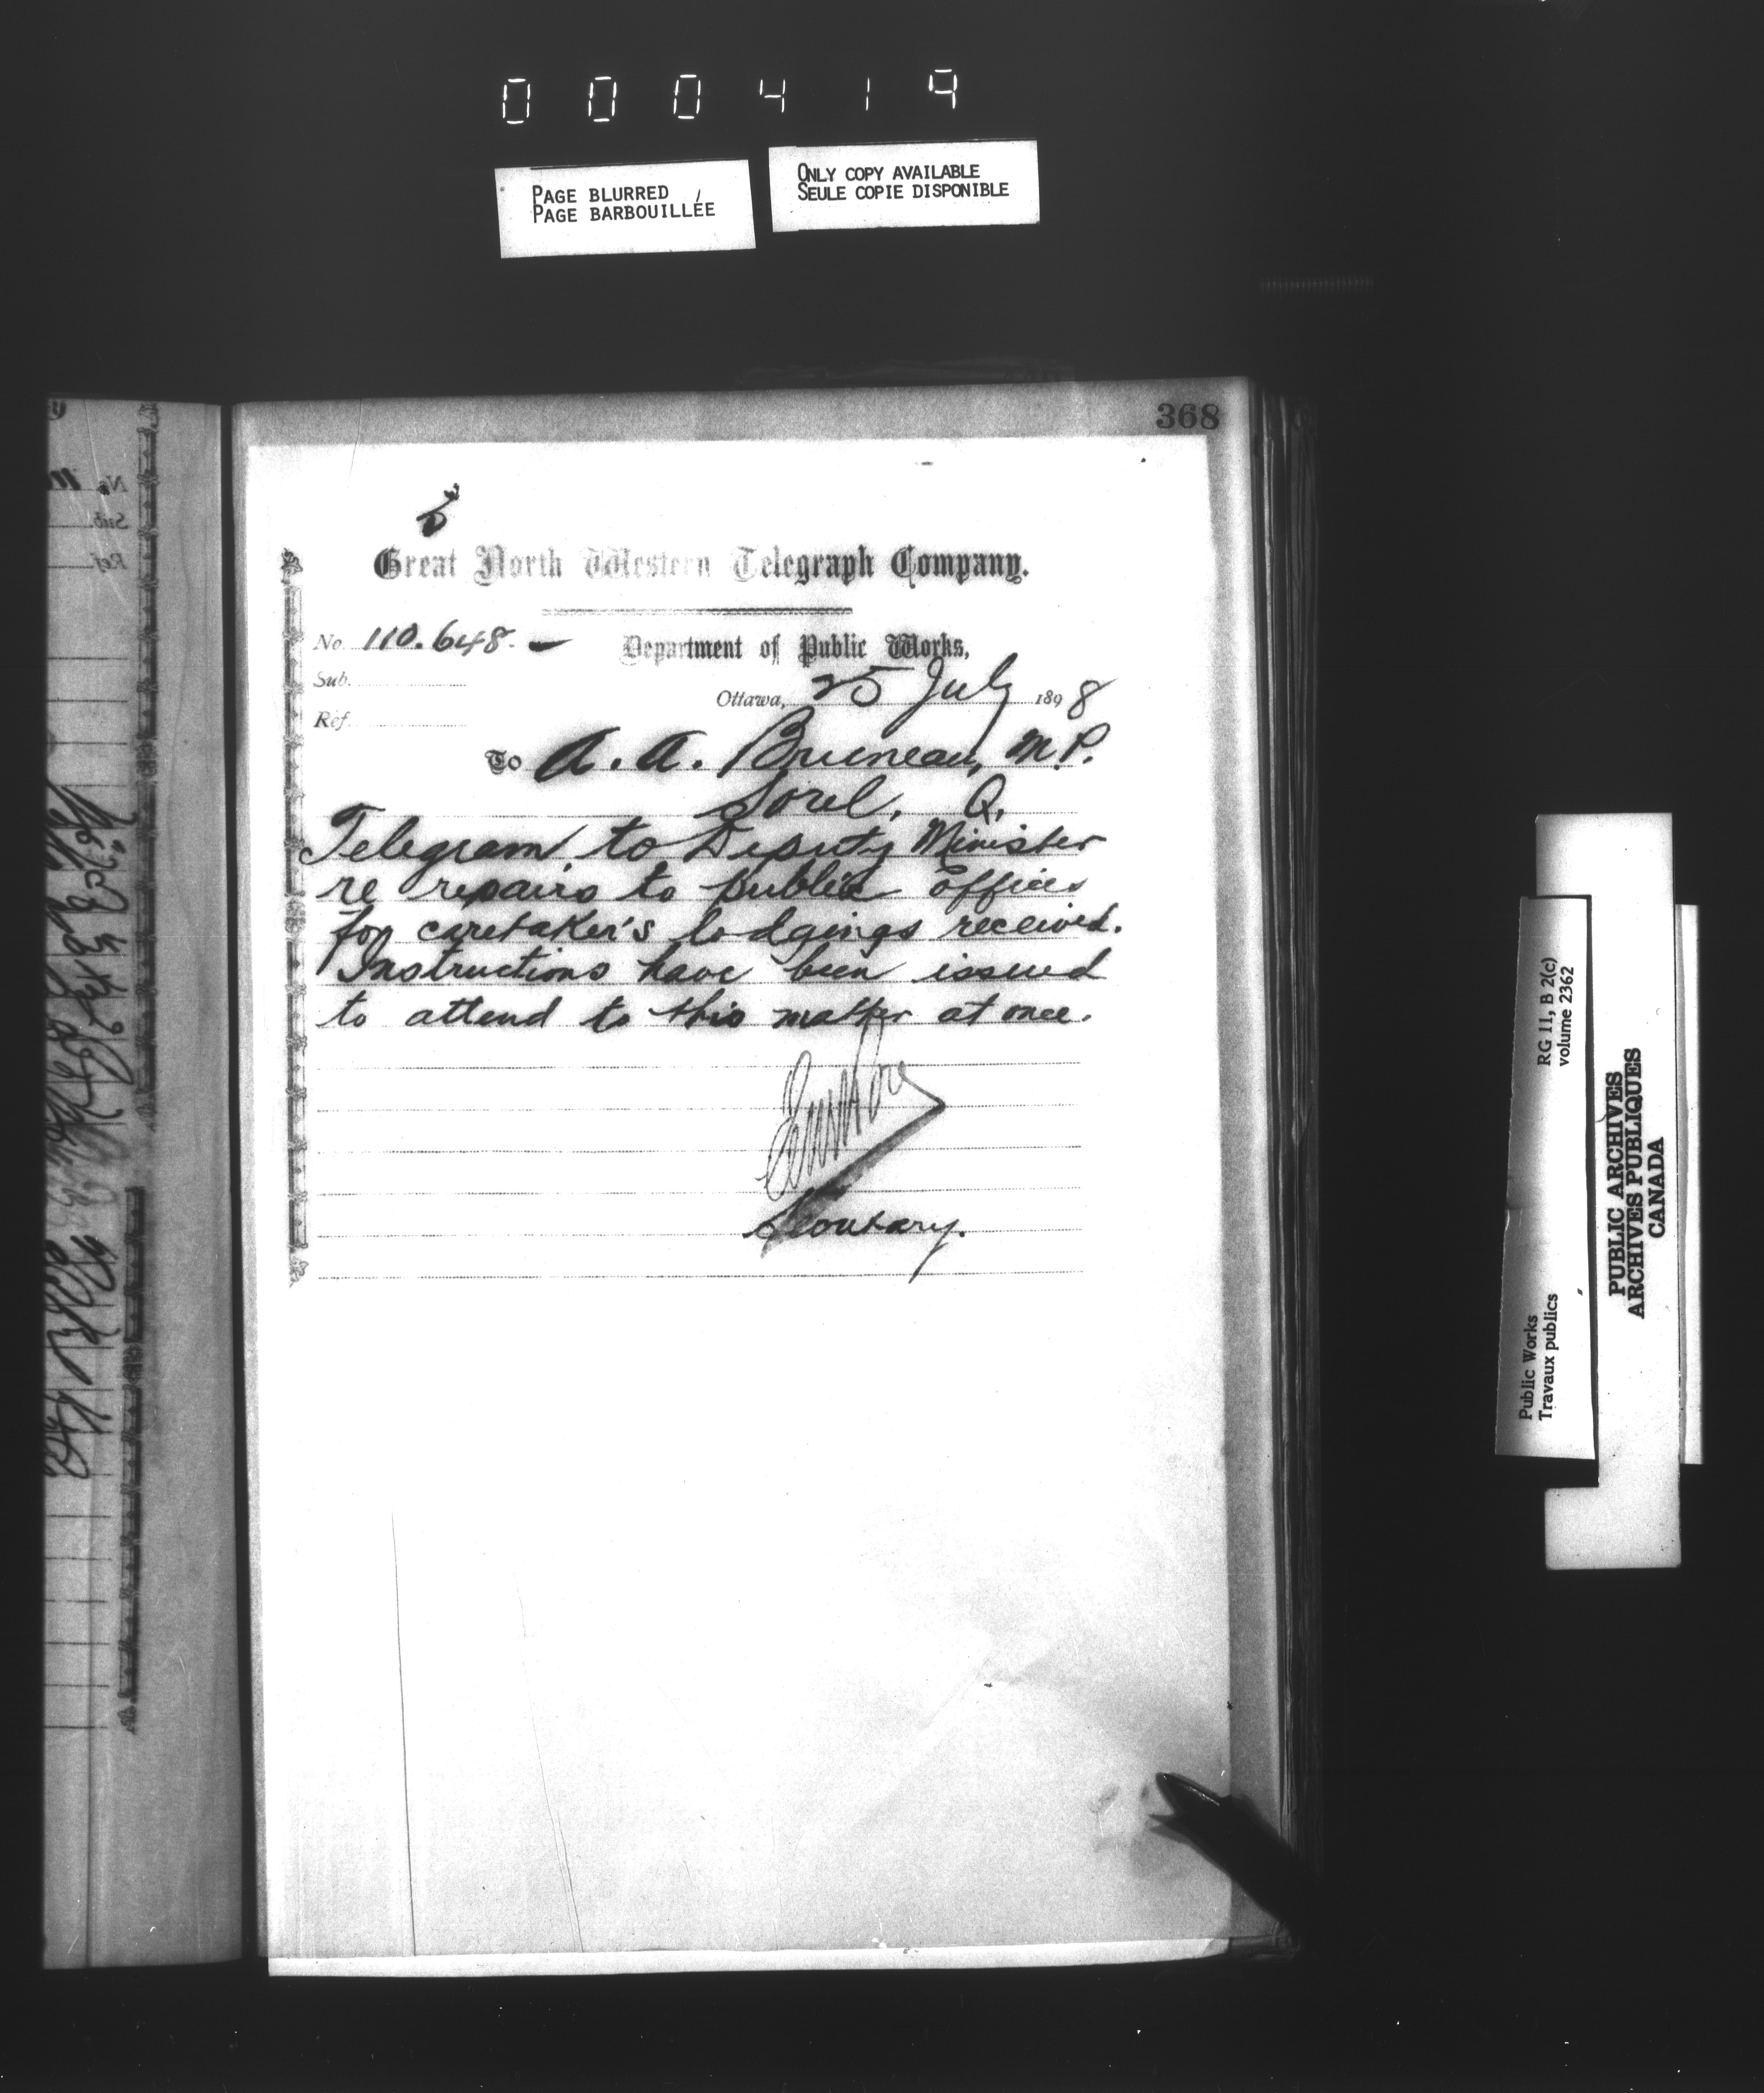 000419
PAGE BLURRED
PAGE BARBOUILLÉE
ONLY COPY AVAILABLE
SEULE COPIE DISPONIBLE
368
Great North Western Telegraph Company.
No. 110.648. -
Department of Public Works,
Sub.
Ottawa, 25 July 1898
Ref.
To A. A. Bruneau, M.P.
Sorel, Q.
Telegram to Deputy Minister
re repairs to public offices
for caretaker's lodgings received.
Instructions have been issued
to attend to this matter at once.
Secretary.
RG 11, B 2(c)
volume 2362
Public Works
Travaux publics
PUBLIC ARCHIVES
ARCHIVES PUBLIQUES
CANADA
No.
Sub.
Ref.